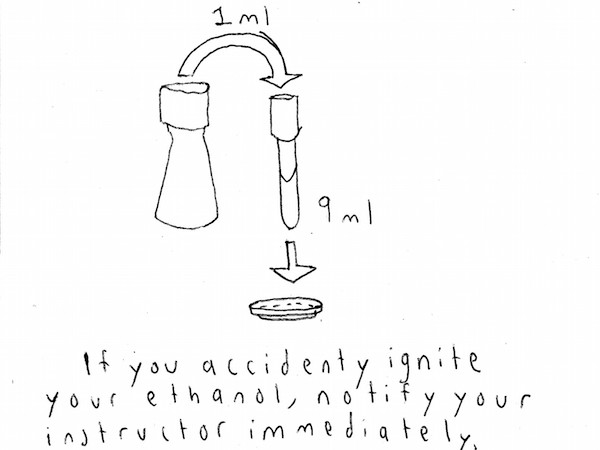 1 ml
9 ml
If you accidenty ignite
your ethanol, notify your
instructor immediately.